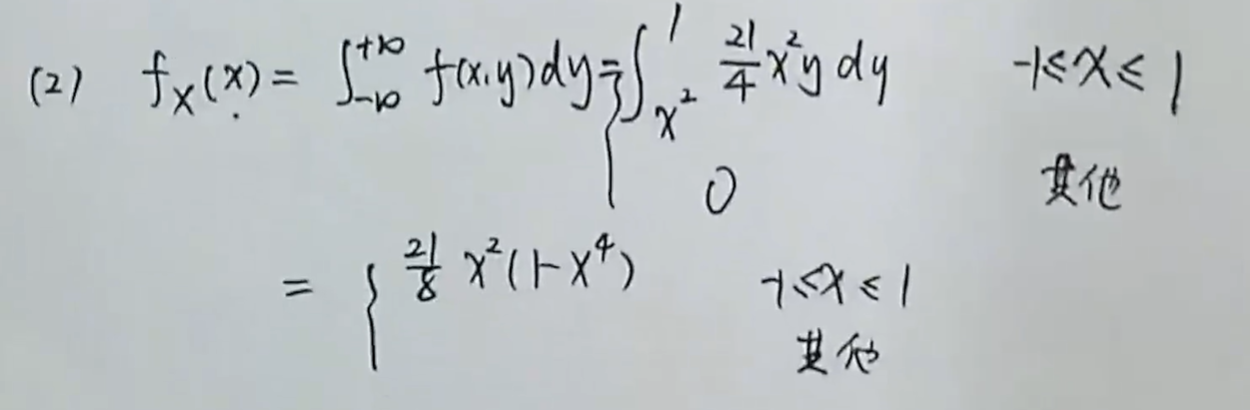 (2) f_X(x) = ∫_{-∞}^{+∞} f(x,y)dy = { ∫_{x²}^{1} 21/4 x²y dy -1≤x≤1
0 其他
= { 21/8 x²(1-x⁴) -1≤x≤1
其他